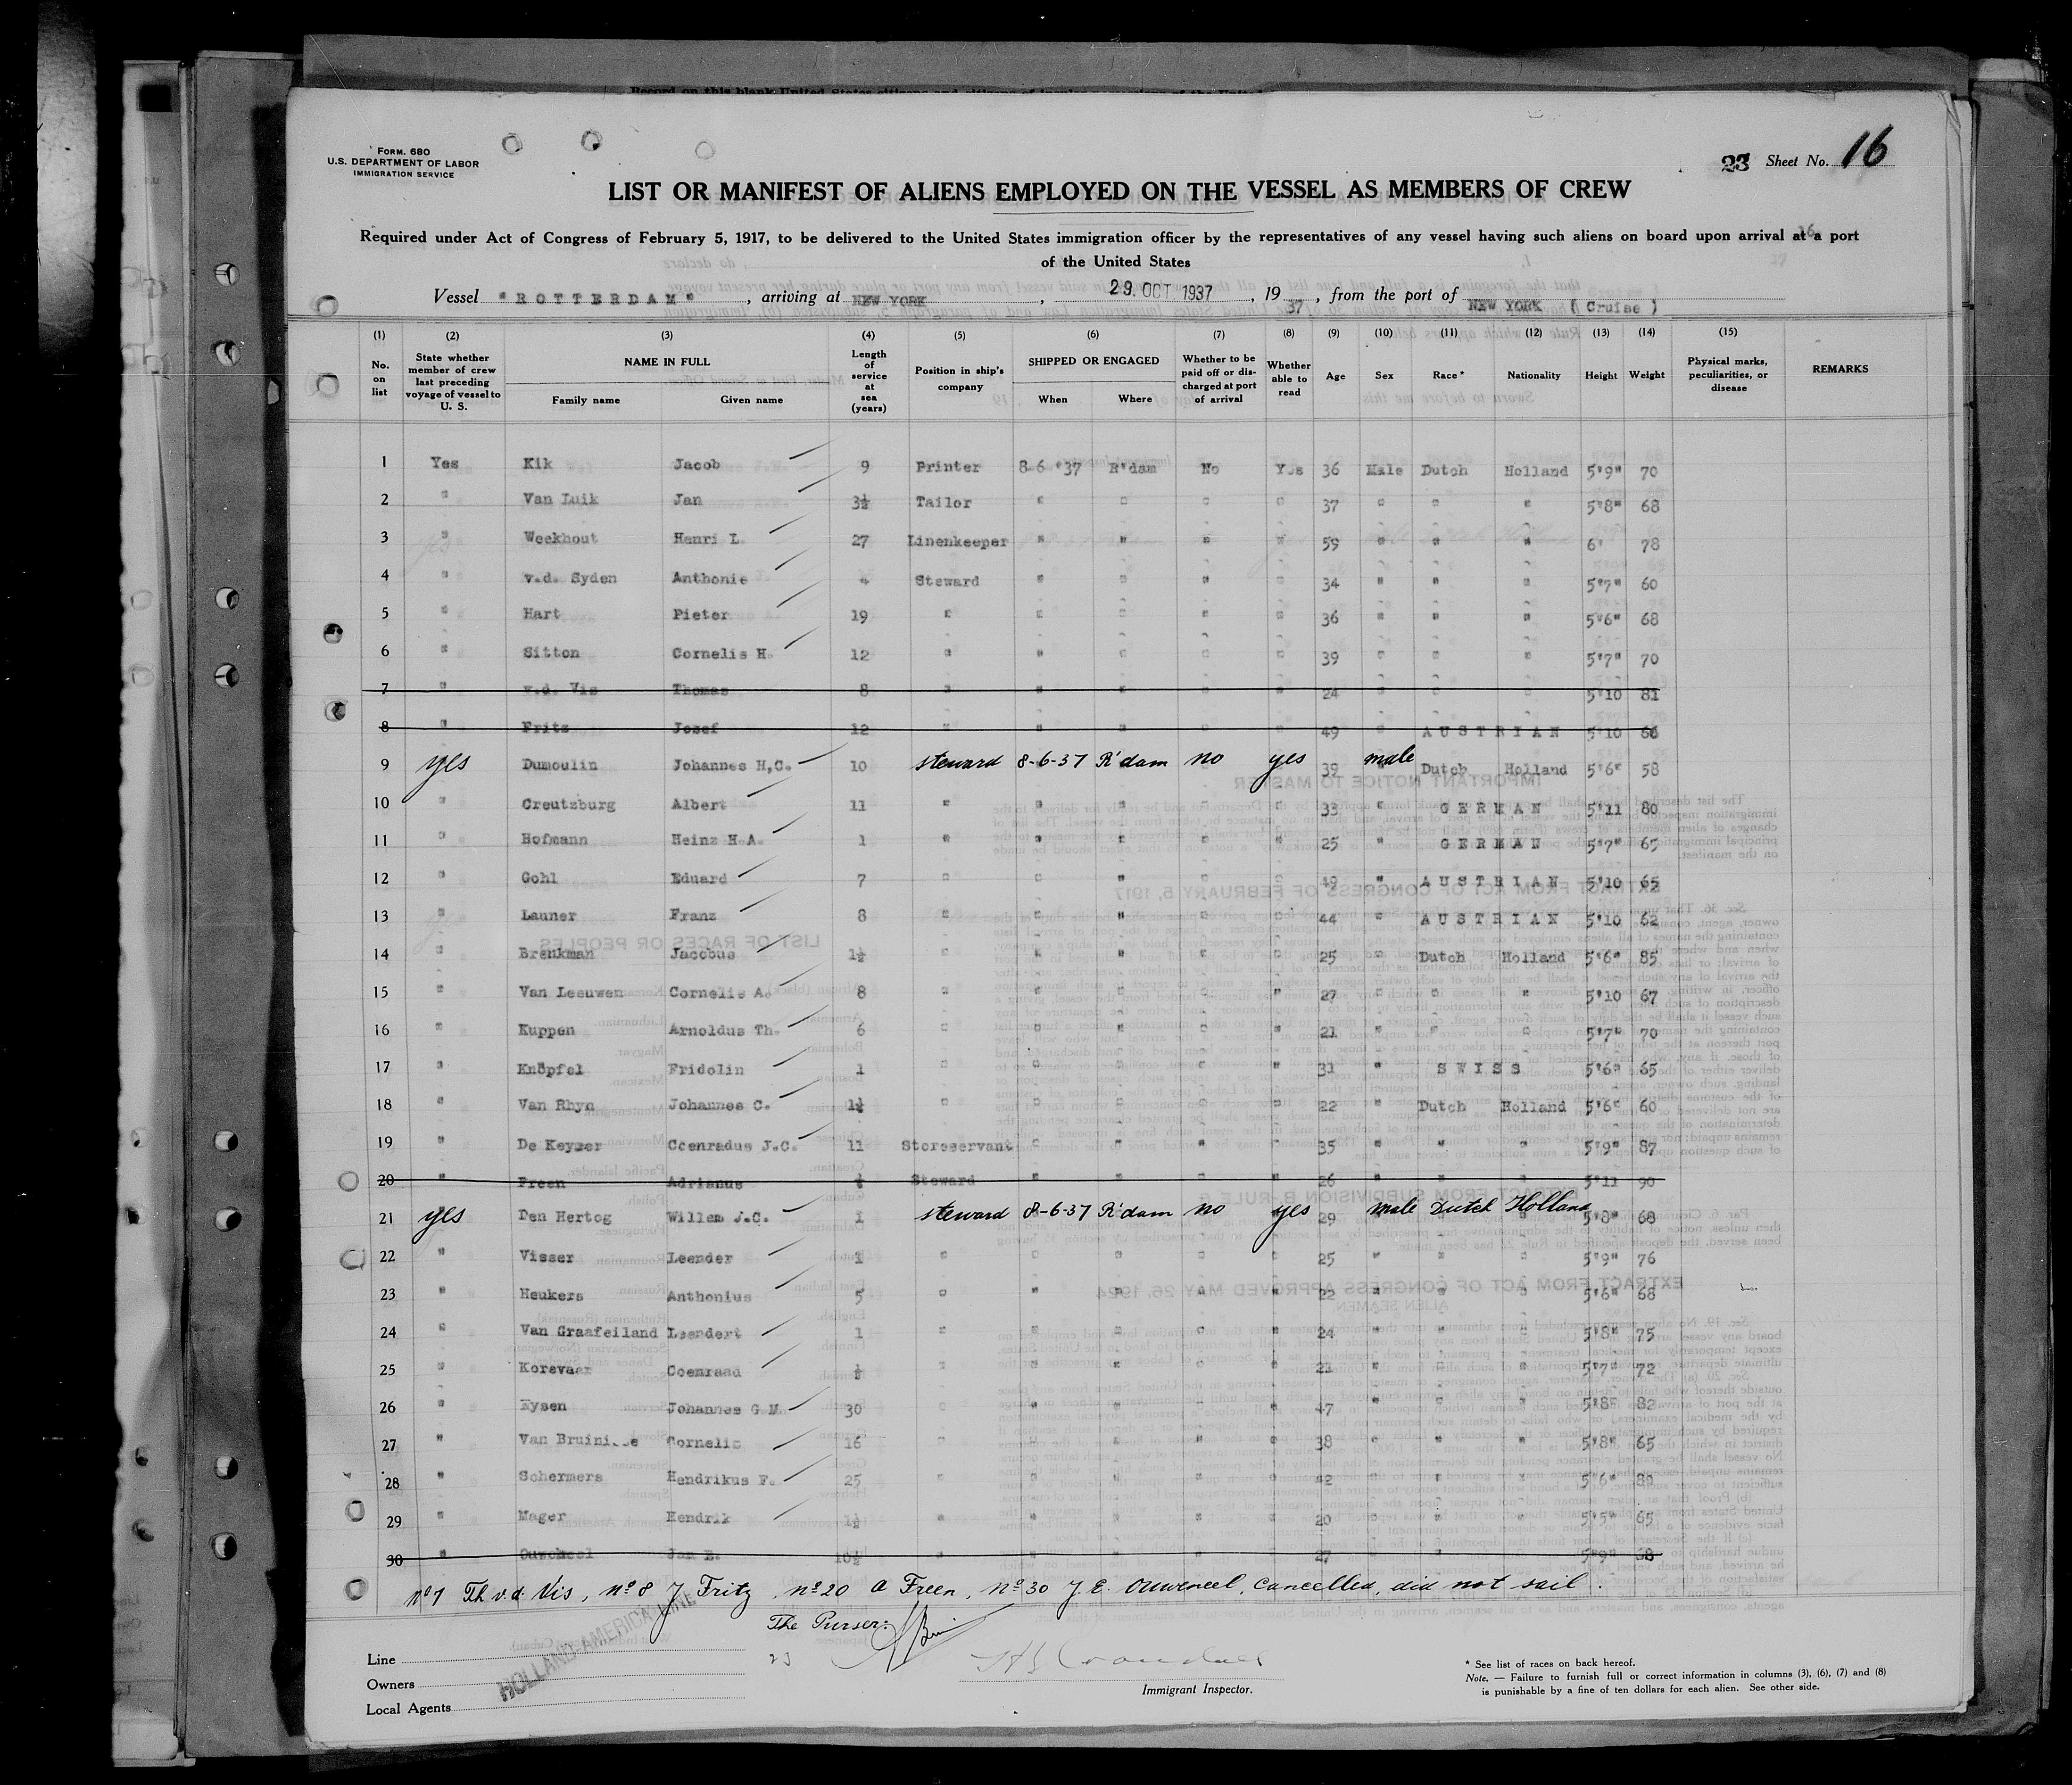 Record on this blank United States citizens and citizens of
FORM. 680
U.S. DEPARTMENT OF LABOR
IMMIGRATION SERVICE
23 Sheet No. 16
LIST OR MANIFEST OF ALIENS EMPLOYED ON THE VESSEL AS MEMBERS OF CREW
Required under Act of Congress of February 5, 1917, to be delivered to the United States immigration officer by the representatives of any vessel having such aliens on board upon arrival at a port
of the United States
Vessel "ROTTERDAM", arriving at NEW YORK, 29. OCT. 1937, 1937, from the port of NEW YORK ( Cruise )
(1) (2) (3) (4) (5) (6) (7) (8) (9) (10) (11) (12) (13) (14) (15)
No. on list State whether member of crew last preceding voyage of vessel to U. S. NAME IN FULL Family name Given name Length of service at sea (years) Position in ship's company SHIPPED OR ENGAGED When Where Whether to be paid off or discharged at port of arrival Whether able to read Age Sex Race* Nationality Height Weight Physical marks, peculiarities, or disease REMARKS
1 Yes Kik Jacob 9 Printer 8 6 '37 R'dam No Yes 36 Male Dutch Holland 5'9" 70
2 " Van Luik Jan 3½ Tailor " " " " 37 " " " 5'8" 68
3 " Weekhout Henri L 27 Linenkeeper " " " " 59 " " " 6' 78
4 " v.d. Syden Anthonie Steward " " " " 34 " " " 5'7" 60
5 " Hart Pieter 19 " " " " " 36 " " " 5'6" 68
6 " Sitton Cornelis H. 12 " " " " " 39 " " " 5'7" 70
7 " v.d. Vis Thomas 8 " " " " " 24 " " " 5'10 81
8 " Fritz Josef 12 " " " " " 49 " AUSTRIAN 5'10 66
9 yes Dumoulin Johannes H,C. 10 steward 8-6-37 R'dam no yes 39 male Dutch Holland 5'6" 58
10 " Creutzburg Albert 11 " " " " " 33 " GERMAN 5'11 80
11 " Hofmann Heinz H A. 1 " " " " " 25 " GERMAN 5'7" 65
12 " Gohl Eduard 7 " " " " " 49 " AUSTRIAN 5'10 65
13 " Launer Franz 8 " " " " " 44 " AUSTRIAN 5'10 62
14 " Brenkman Jacobus 1½ " " " " " 25 " Dutch Holland 5'6" 85
15 " Van Leeuwen Cornelis A. 8 " " " " " 27 " " " 5'10 67
16 " Kuppen Arnoldus Th. 6 " " " " " 21 " " " 5'7" 70
17 " Knöpfel Fridolin 1 " " " " " 31 " SWISS 5'6" 65
18 " Van Rhyn Johannes C. 1½ " " " " " 22 " Dutch Holland 5'6" 60
19 " De Keyzer Coenradus J.C. 11 Storeservant " " " " 35 " " " 5'9" 87
20 " Freen Adrianus Steward " " " " 26 " " " 5'11 90
21 yes Den Hertog Willem J.C. 1 steward 8-6-37 R'dam no yes 29 male Dutch Holland 5'8" 68
22 " Visser Leender 1 " " " " " 25 " " " 5'9" 76
23 " Heukers Anthonius 5 " " " " " 22 " " " 5'6" 68
24 " Van Graafeiland Leendert 1 " " " " " 24 " " " 5'8" 75
25 " Korevaar Coenraad " " " " " 21 " " " 5'7" 72
26 " Eysen Johannes G M. 30 " " " " " 47 " " " 5'8" 82
27 " Van Cornelis 16 " " " " " 38 " " " 5'8" 65
28 " Schermers Hendrikus F. 25 " " " " " 42 " " " 5'6" 89
29 " Mager Hendrik 1½ " " " " " 20 " " " 5'5" 65
30 " Ouweneel Jan E. 10½ " " " " " 27 " " " 5'9" 68
No 7 Th v.d. Vis, No 8 J. Fritz, No 20 A Freen, No 30 J. E. Ouweneel, cancelled, did not sail.
The Purser:
23
Line
HOLLAND-AMERICA LINE
Owners
Local Agents
Immigrant Inspector.
* See list of races on back hereof.
Note. — Failure to furnish full or correct information in columns (3), (6), (7) and (8)
is punishable by a fine of ten dollars for each alien. See other side.